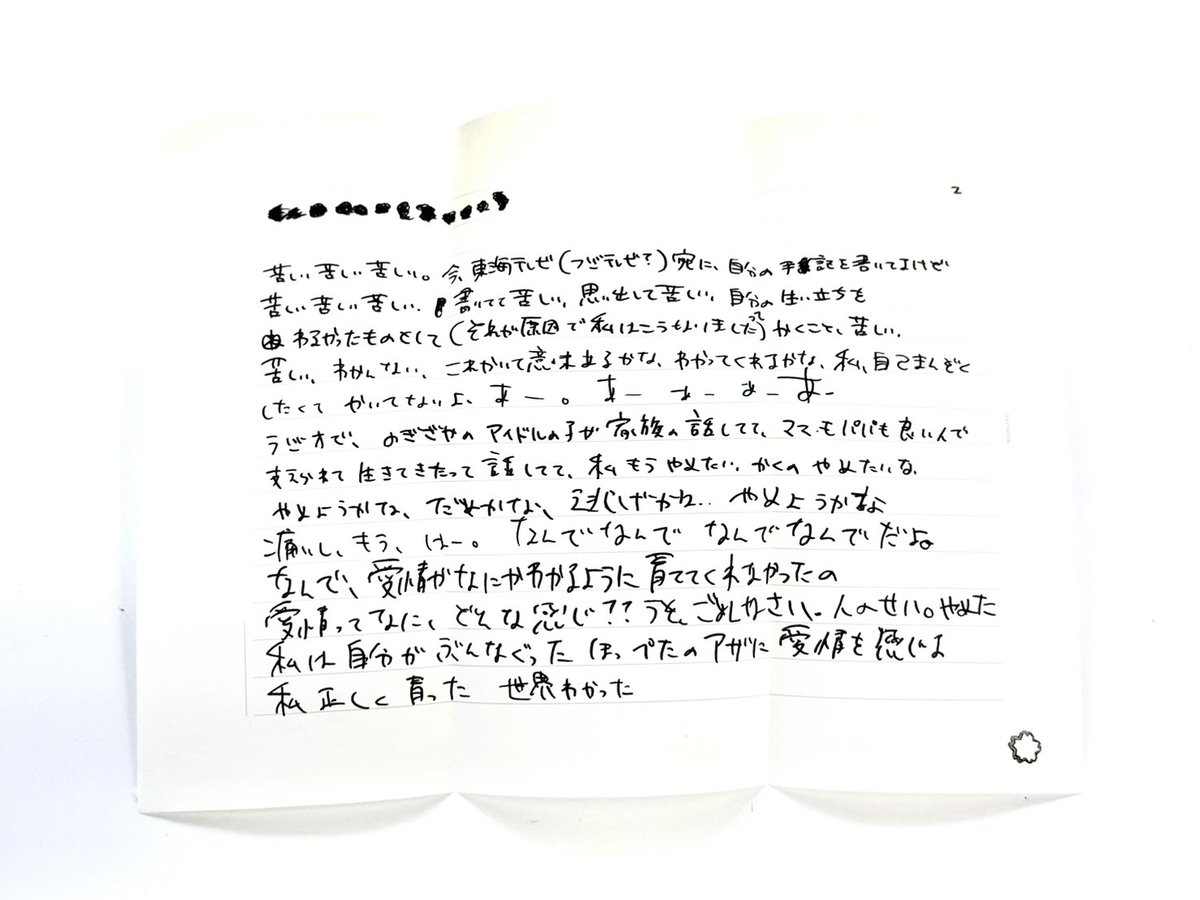 2
苦しい苦しい苦しい。今、東海テレビ(フジテレビ?)宛に、自分の手記を書いてるけど
苦しい苦しい苦しい、書いてて苦しい、思い出して苦しい、自分の生い立ちを
わるかったものとして(それが原因で私はこうなりましたって)かくこと、苦しい、
苦しい、わかんない、これかいて意味あるかな、わかってくれるかな、私、自己まんぞく
したくてかいてないよ、あー。あーあーあーあー
ラジオで、のぎざかのアイドルの子が家族の話してて、ママもパパも良い人で
支えられて生きてきたって話してて、私もうやめたい、かくのやめたいな
やめようかな、だめかな、逃げかね.. やめようかな
痛いし、もう、はー。なんでなんでなんでなんでだよ
なんで、愛情がなにかわかるように育ててくれなかったの
愛情ってなに、どんな感じ??うそ、ごめんなさい、人のせい。やめた
私は自分がぶんなぐったほっぺたのアザに愛情を感じよ
私正しく育った 世界わかった